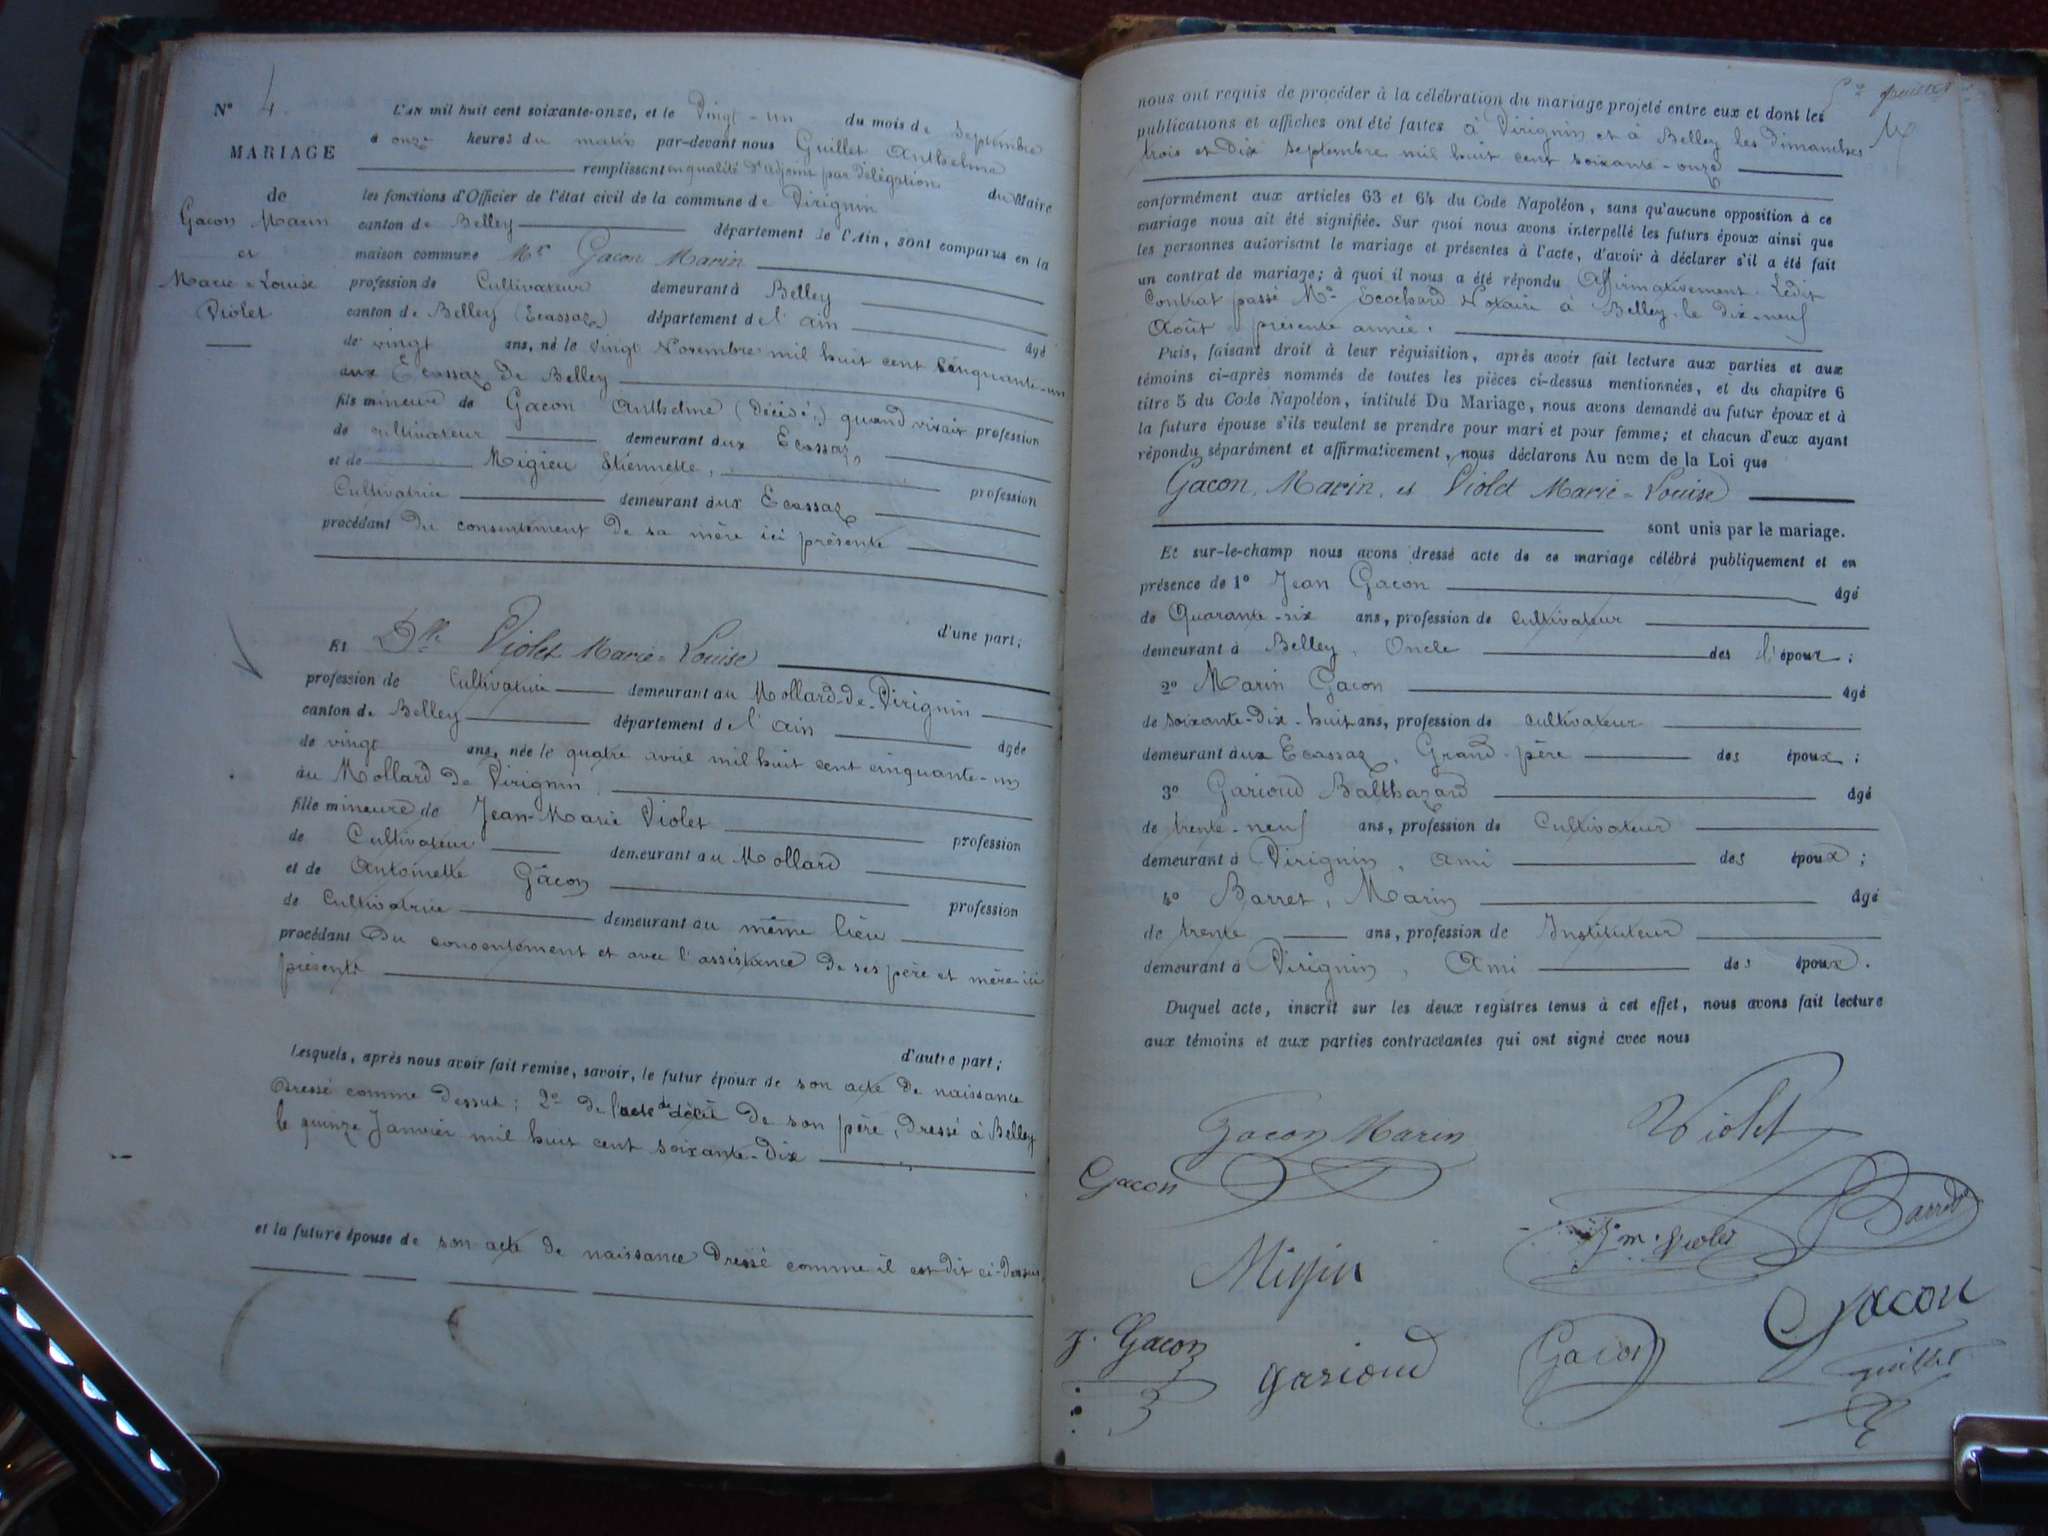 N° 4.
MARIAGE
de
Gacon Marin
et
Marie-Louise
Violet
L'AN mil huit cent soixante-onze, et le Vingt-un du mois de Septembre
à onze heures du matin par-devant nous Guillet Anthelme
remplissant en qualité d'adjoint par délégation du Maire
les fonctions d'Officier de l'état civil de la commune de Virignin
canton de Belley département de l'Ain, sont comparus en la
maison commune Mr Gacon Marin
profession de Cultivateur demeurant à Belley
canton de Belley (Ecassaz) département de l'ain âgé
de vingt ans, né le vingt Novembre mil huit cent cinquante-un
aux Ecassaz de Belley
fils mineure de Gacon Anthelme (décédé,) quand vivait profession
de cultivateur demeurant aux Ecassaz,
et de Migieu Etiennette, profession
Cultivatrice demeurant aux Ecassaz
procédant du consentement de sa mère ici présente
d'une part;
Et Dlle Violet Marie-Louise
profession de Cultivatrice demeurant au Mollard-de-Virignin
canton de Belley département de l'ain âgée
de vingt ans, née le quatre avril mil huit cent cinquante-un
au Mollard de Virignin,
fille mineure de Jean-Marie Violet profession
de Cultivateur demeurant au Mollard
et de Antoinette Gacon profession
de Cultivatrice demeurant au même lieu
procédant du consentement et avec l'assistance de ses père et mère ici
présents
d'autre part;
Lesquels, après nous avoir fait remise, savoir, le futur époux de son acte de naissance
dressé comme dessus; 2° de l'acte de décès de son père, dressé à Belley
le quinze Janvier mil huit cent soixante-dix
et la future épouse de son acte de naissance dressé comme il est dit ci-dessus
5me feuillet
nous ont requis de procéder à la célébration du mariage projeté entre eux et dont les
publications et affiches ont été faites à Virignin et à Belley les dimanches
trois et dix septembre mil huit cent soixante-onze
conformément aux articles 63 et 64 du Code Napoléon, sans qu'aucune opposition à ce
mariage nous ait été signifiée. Sur quoi nous avons interpellé les futurs époux ainsi que
les personnes autorisant le mariage et présentes à l'acte, d'avoir à déclarer s'il a été fait
un contrat de mariage; à quoi il nous a été répondu Affirmativement. Ledit
Contrat passé Me Ecochard Notaire à Belley, le dix-neuf
Août présente année.
Puis, faisant droit à leur réquisition, après avoir fait lecture aux parties et aux
témoins ci-après nommés de toutes les pièces ci-dessus mentionnées, et du chapitre 6
titre 5 du Code Napoléon, intitulé Du Mariage, nous avons demandé au futur époux et à
la future épouse s'ils veulent se prendre pour mari et pour femme; et chacun d'eux ayant
répondu séparément et affirmativement, nous déclarons Au nom de la Loi que
Gacon, Marin, et Violet Marie-Louise
sont unis par le mariage.
Et sur-le-champ nous avons dressé acte de ce mariage célébré publiquement et en
présence de 1° Jean Gacon âgé
de Quarante-six ans, profession de cultivateur
demeurant à Belley, Oncle des l'époux;
2° Marin Gacon âgé
de soixante-dix-huit ans, profession de cultivateur
demeurant aux Ecassaz, Grand-père des époux;
3° Garioud Balthazard âgé
de trente-neuf ans, profession de Cultivateur
demeurant à Virignin, ami des époux;
4° Barret, Marin âgé
de trente ans, profession de Instituteur
demeurant à Virignin, Ami des époux.
Duquel acte, inscrit sur les deux registres tenus à cet effet, nous avons fait lecture
aux témoins et aux parties contractantes qui ont signé avec nous
Gacon Marin
Violet
Gacon
Barret
Jm. Violet
Migieu
Gacon
J. Gacon
Garioud
Gacon
guillet